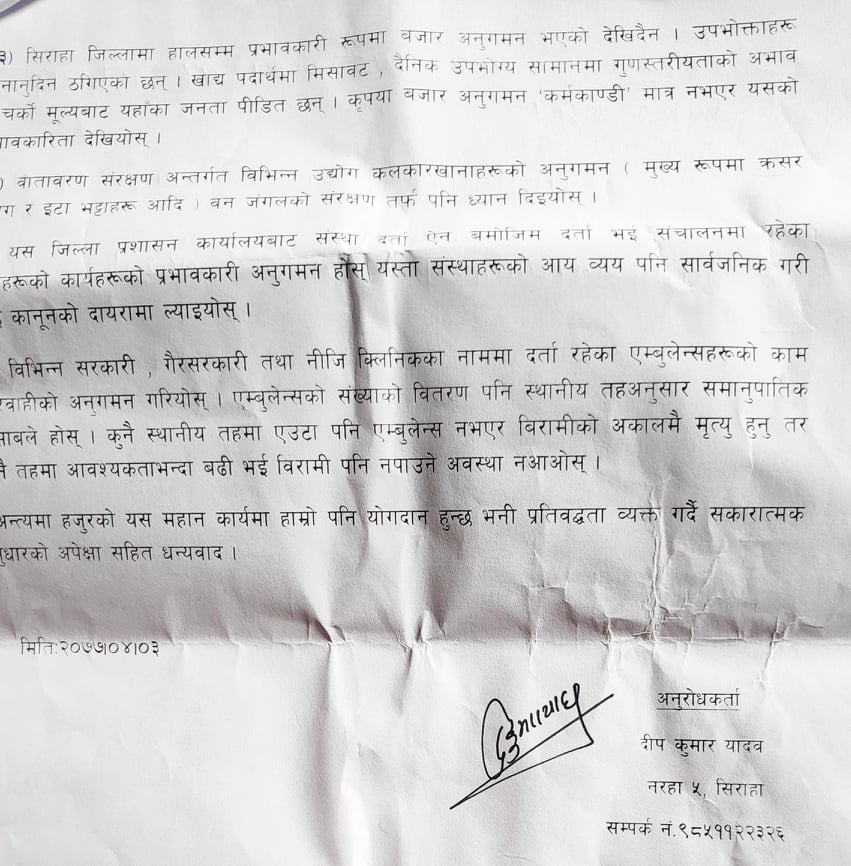 ३) सिराहा जिल्लामा हालसम्म प्रभावकारी रूपमा बजार अनुगमन भएको देखिदैन । उपभोक्ताहरू
नानुदिन ठगिएका छन् । खाद्य पदार्थमा मिसावट , दैनिक उपभोग्य सामानमा गुणस्तरीयताको अभाव
चर्को मूल्यबाट यहाँका जनता पीडित छन् । कृपया बजार अनुगमन 'कर्मकाण्डी' मात्र नभएर यसको
ावकारिता देखियोस् ।
) वातावरण संरक्षण अन्तर्गत विभिन्न उद्योग कलकारखानाहरूको अनुगमन ( मुख्य रूपमा क्रसर
ग र इटा भट्टाहरू आदि ) वन जंगलको संरक्षण तर्फ पनि ध्यान दिइयोस् ।
यस जिल्ला प्रशासन कार्यालयबाट संस्था दर्ता ऐन बमोजिम दर्ता भई संचालनमा रहेका
हरूको कार्यहरूको प्रभावकारी अनुगमन होस् यस्ता संस्थाहरूको आय व्यय पनि सार्वजनिक गरी
कानूनको दायरामा ल्याइयोस् ।
विभिन्न सरकारी , गैरसरकारी तथा नीजि क्लिनिकका नाममा दर्ता रहेका एम्बुलेन्सहरूको काम
रवाहीको अनुगमन गरियोस् । एम्बुलेन्सको संख्याको वितरण पनि स्थानीय तहअनुसार समानुपातिक
साबले होस् । कुनै स्थानीय तहमा एउटा पनि एम्बुलेन्स नभएर बिरामीको अकालमै मृत्यु हुनु तर
नै तहमा आवश्यकताभन्दा बढी भई विरामी पनि नपाउने अवस्था नआओस् ।
अन्त्यमा हजुरको यस महान कार्यमा हाम्रो पनि योगदान हुन्छ भनी प्रतिवद्धता व्यक्त गर्दै सकारात्मक
ुधारको अपेक्षा सहित धन्यवाद ।
मिति:२०७७।०४।०३
अनुरोधकर्ता
दीप कुमार यादव
नरहा ५, सिराहा
सम्पर्क नं.९८५११२२३२६